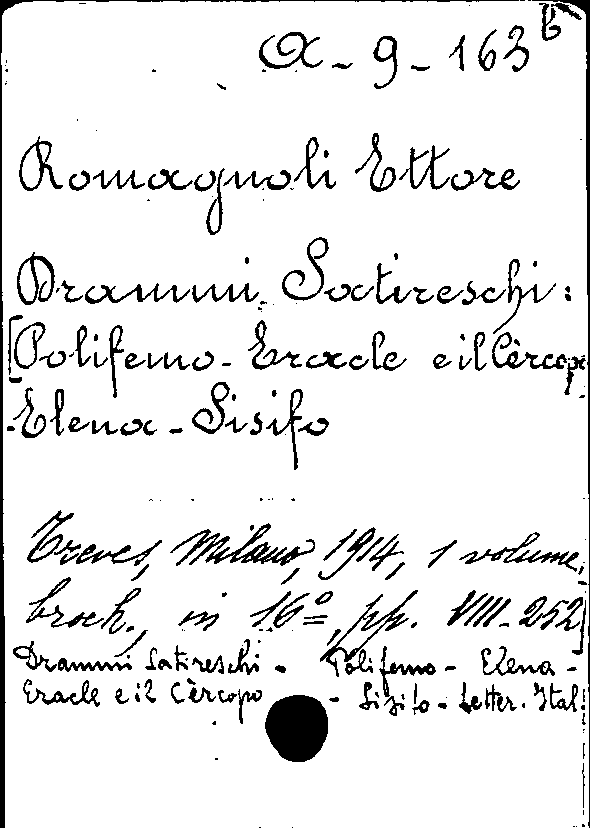 A - 9 - 163 b
Romagnoli Ettore
Drammi Satireschi:
[Polifemo - Eracle e il Cèrcopo
- Elena - Sisifo
Treves, Milano, 1914, 1 volume,
broch., in 16º, pp. VIII-252]
Drammi Satireschi - Polifemo - Elena -
Eracle e il Cèrcopo - Sisifo - Letter. Ital.